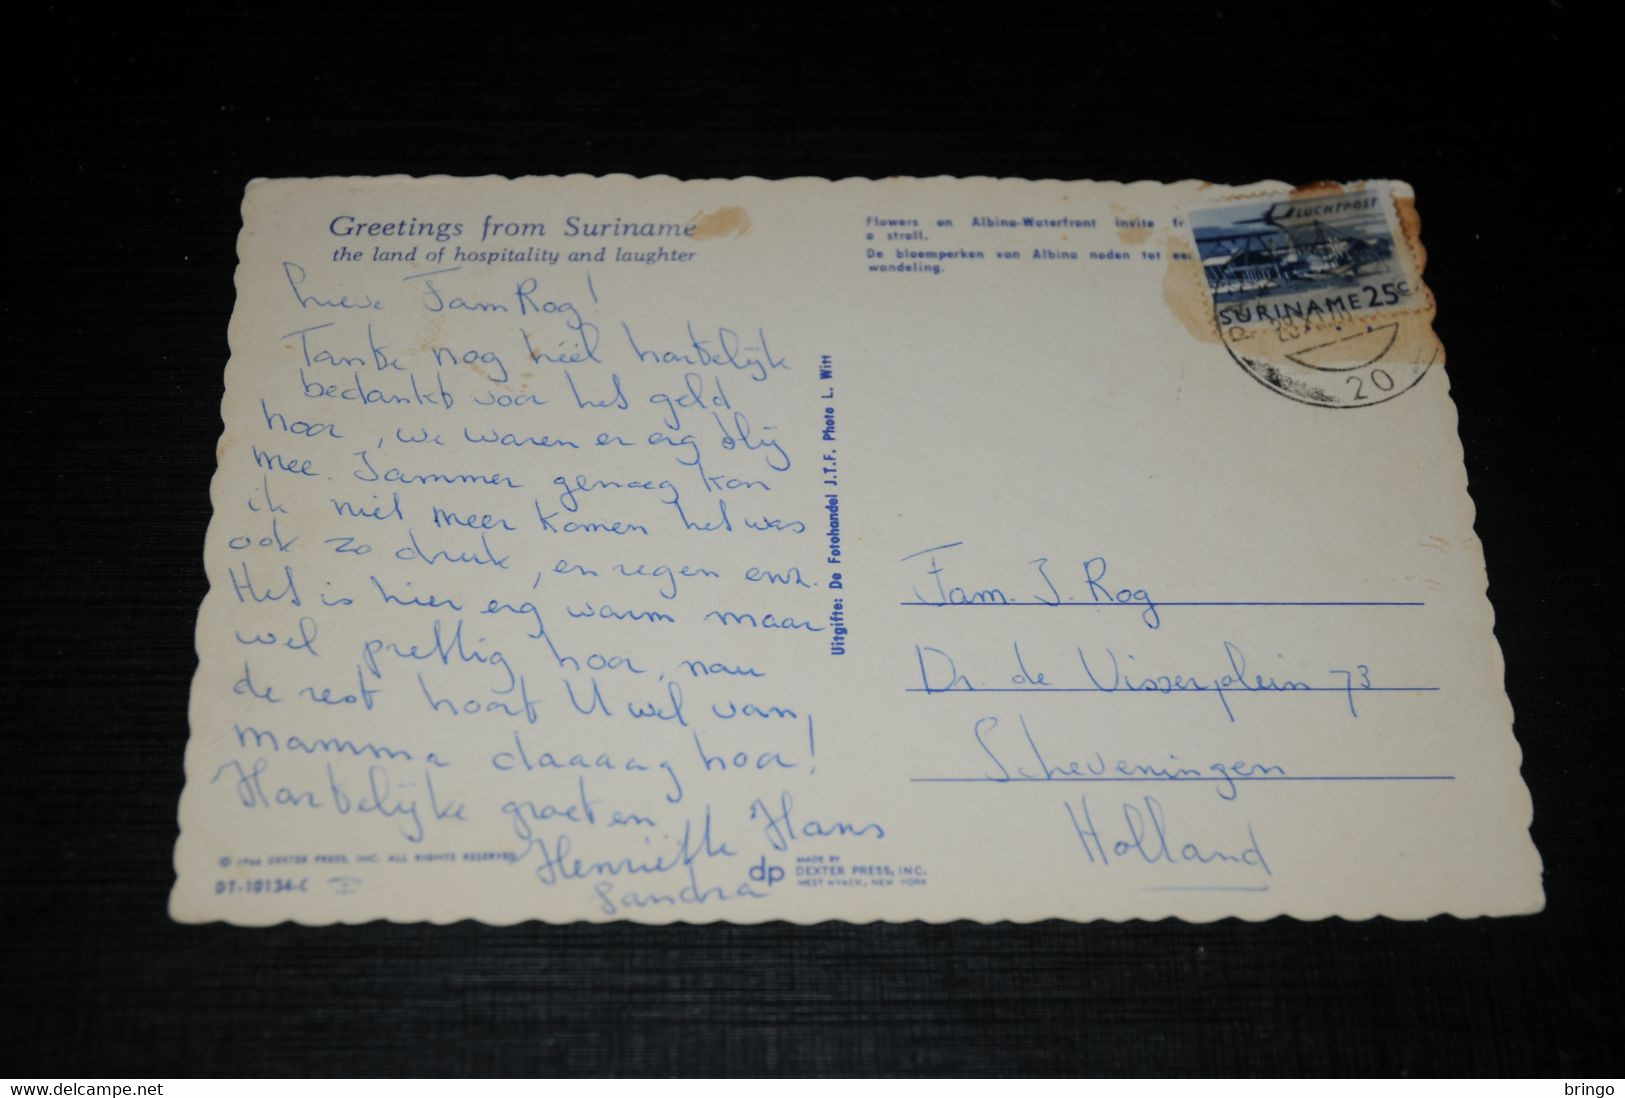 Greetings from Suriname
the land of hospitality and laughter
Lieve Fam Rog!
Tante, nog héél hartelijk
bedankt voor het geld
hoor, we waren er erg blij
mee. Jammer genoeg kon
ik niet meer komen het was
ook zo druk, en regen enz.
Het is hier erg warm maar
wel prettig hoor, nou
de rest hoort U wel van,
mamma daaaag hoor!
Hartelijke groeten
Hans
Henriëtte
Sandra
© 1966 DEXTER PRESS, INC. ALL RIGHTS RESERVED
DT-10134-C
dp MADE BY
DEXTER PRESS, INC.
WEST NYACK, NEW YORK
Uitgifte: De Fotohandel J.T.F. Photo L. Witt
Flowers on Albina-Waterfront invite
a stroll.
De bloemperken van Albina noden tot
wandeling.
LUCHTPOST
SURINAME 25c
20
Fam. J. Rog
Dr. de Visserplein 73
Scheveningen
Holland
bringo